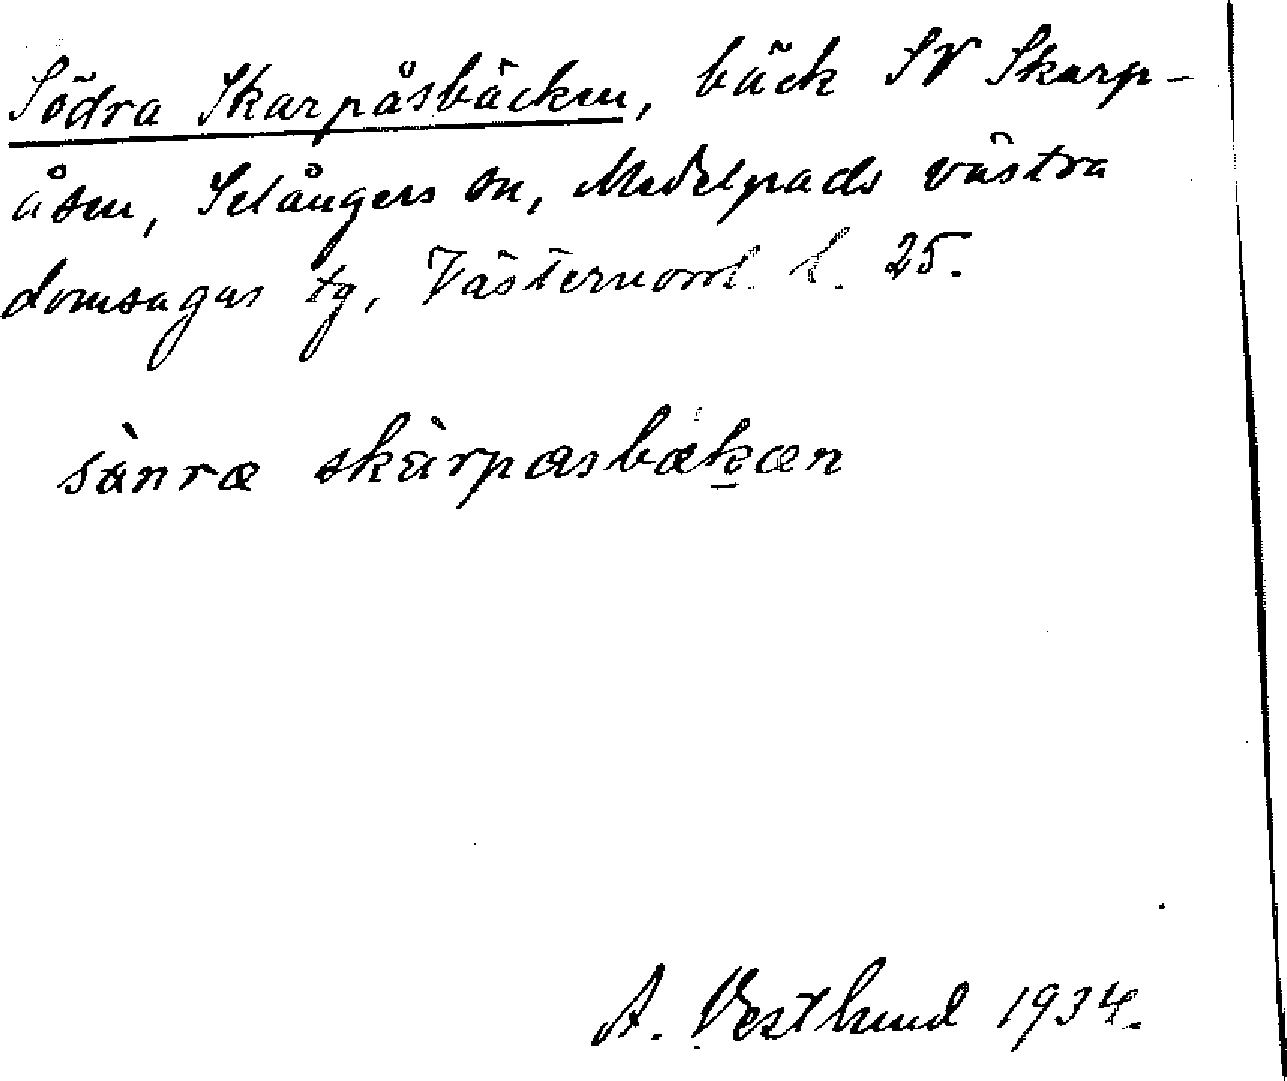 Södra Skarpåsbäcken, bäck SV Skarp-
åsen, Selångers sn, Medelpads västra
domsagas tg, Västernorrl. l. 25.
sànræ skàrpæsbækæn
A. Vestlund 1934.